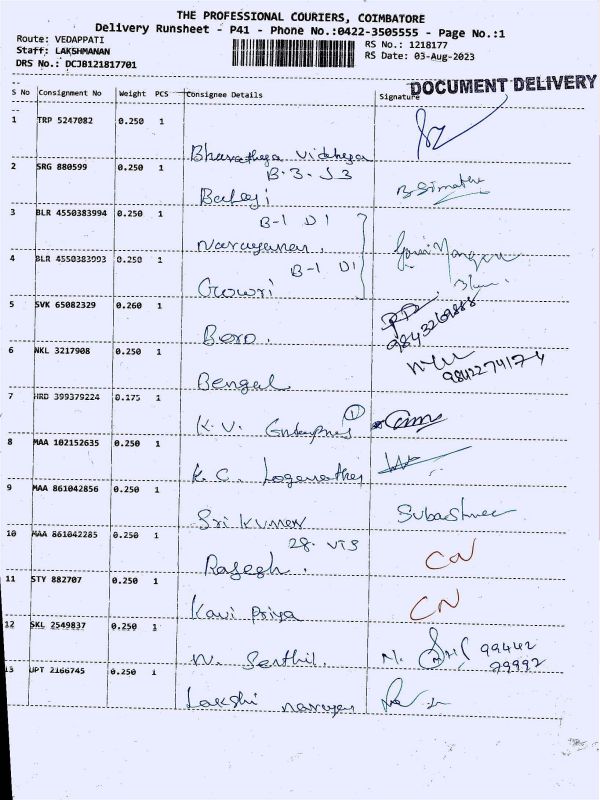 THE PROFESSIONAL COURIERS, COIMBATORE
Delivery Runsheet - P41 - Phone No.:0422-3505555 - Page No.:1
Route: VEDAPPATI
RS No.: 1218177
Staff: LAKSHMANAN
RS Date: 03-Aug-2023
DRS No.: DCJB121817701
DOCUMENT DELIVERY
S No Consignment No Weight PCS Consignee Details Signature
1 TRP 5247082 0.250 1
Bharathega
B-3-J3
2 SRG 880599 0.250 1
Balaji
B-1 D1
3 BLR 4550383994 0.250 1
Narayanan.
B-1 D1
4 BLR 4550383993 0.250 1
Gowri
5 SVK 65082329 0.260 1
9843269888
Boro.
6 NKL 3217908 0.250 1
9842274174
Bengal
7 HRD 399379224 0.175 1
K.V. Enterprises (1)
8 MAA 102152635 0.250 1
K.C. Loganathan
9 MAA 861042856 0.250 1
Sri Kumar Subashree
28. VTS
10 MAA 861042285 0.250 1
Rajesh. CN
11 STY 882707 0.250 1
Kavi Priya CN
12 SKL 2549837 0.250 1
N. Senthil. 99442
79992
13 UPT 2166745 0.250 1
Lakshi narayan